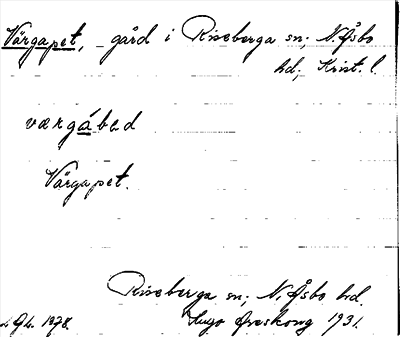 Värgapet, gård i Riseberga sn; N. Åsbo
hd; Krist. l.
værgábad
Värgapet.
Riseberga sn; N. Åsbo hd.
Hugo Areskoug 1931.